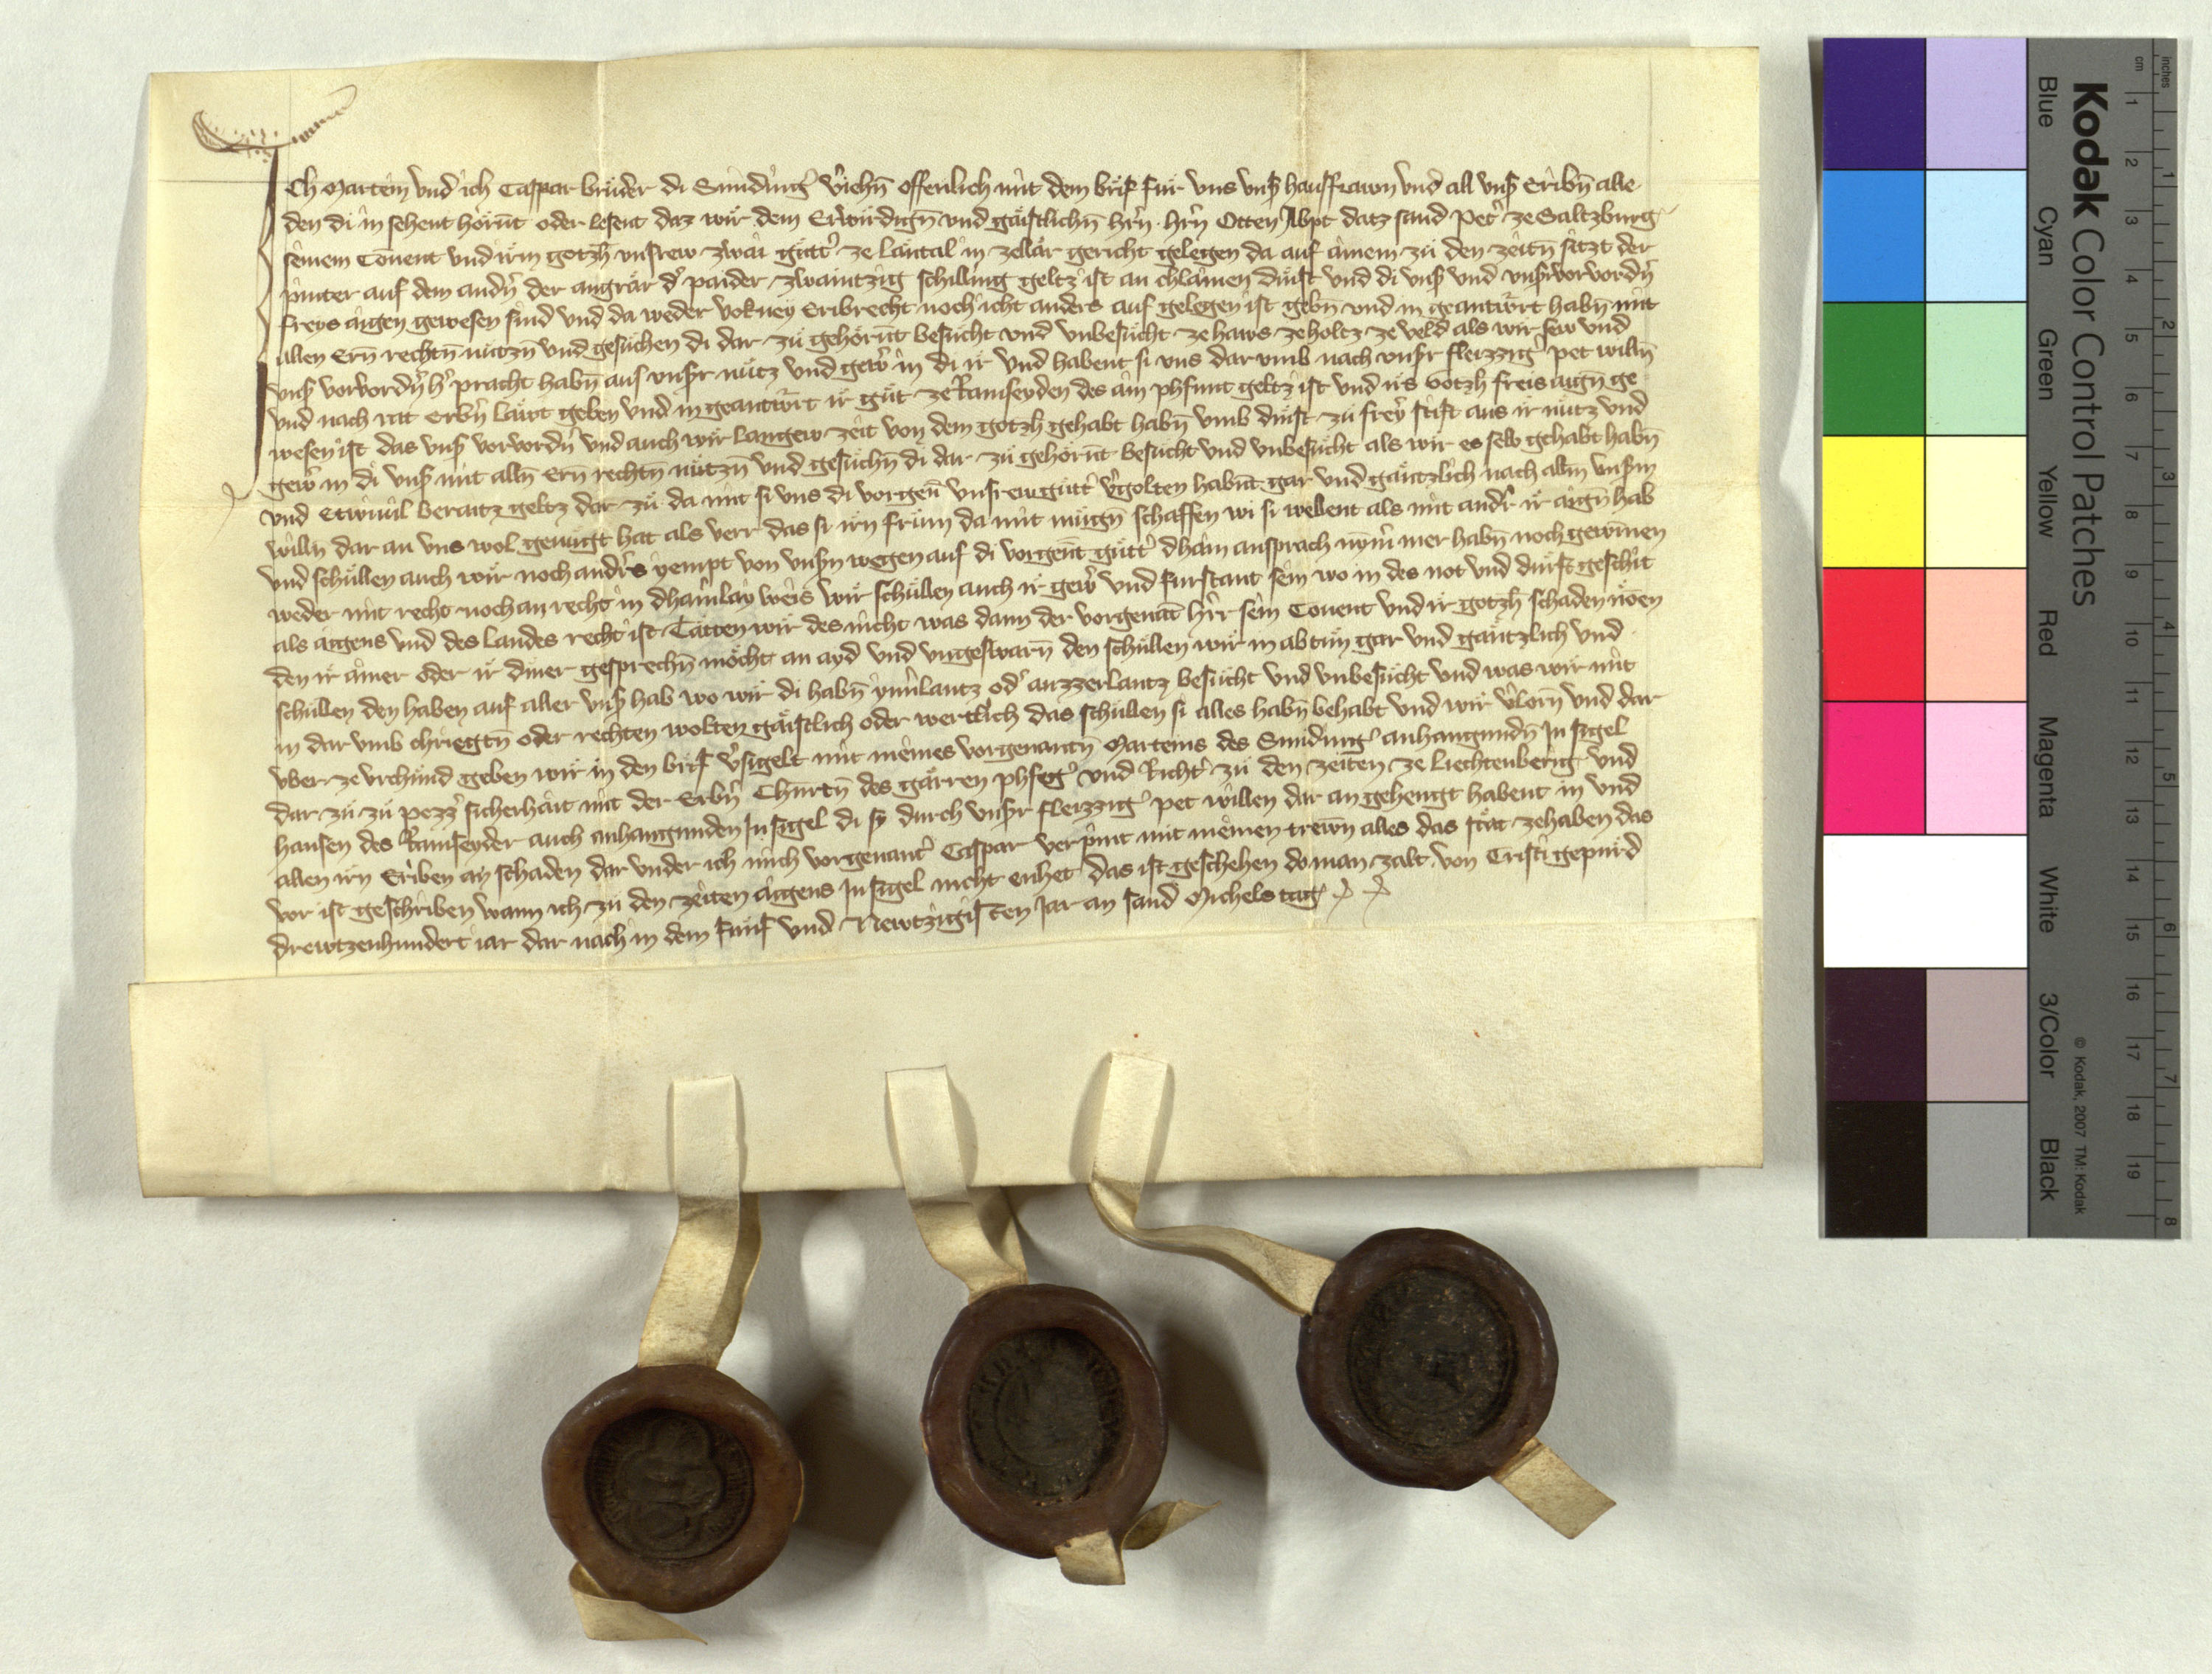 Ich Martein und ich Caspar bruder di Sinndinger v'iehn offenlich mit dem brif fur uns uns' hausfrawn und all uns' Eribn alle
den di in sehent hornt oder lesent daz wir dem Erwirdign und gaistlichn hrn hrn Otten Abpt datz sand Pet' ze Saltzburg
seinem Convent und irm gotzh unsrew zwai gutt' ze Lantal in zellar gericht gelegen da auf ainem zu den zeitn sitzt der
pinter auf dem andn der angrar d' paider zwaintzig schilling geltz ist an chlainen dinst und di uns' und uns' vorvordn
freys aigen gewesen sind und da weder vokney Eribrecht noch icht anders auf gelegen ist gebn und in geantwort habn mit
allen Ern rechtn nutzn und gesuchen di dar zu gehornt besucht und unbesucht ze haws ze holtz ze veld als wir sew und
uns' vorvordn h' pracht habn aus unsr nutz und gew' in di ir und habent si uns dar umb nach unsr fleizzig' pet willn
und nach rat erbn lawt geben und in geantwort ir gut ze Ramseyden des ain phfunt geltz ist und irs Gotzh freis aign ge
wesen ist das uns' vorvordn und auch wir langew zeit von dem gotzh gehabt habn umb dinst zu frey stift aus ir nutz und
gew' in di uns' mit alln Ern rechtn nutzn und gesuchn di dar zu gehornt besucht und unbesucht als wir es selb gehabt habn
und Etwiuil beraitz geltz dar zu da mit si uns di vorgen unsrew gutt' v'golten habnt gar und gantzlich nach allm unsrm
willn dar an uns wol genugt hat als verr das si irn frum da mit mugn schaffen wi si wellent als mit andr' ir aign hab
und schullen auch wir noch andrs yempt von unsrn wegen auf di vorgent gutt' dhain ansprach nym mer habn noch gewinnen
weder mit recht noch an recht in dhainlay weis wir schullen auch ir gew' und furstant sein wo in des not und durft geschit
als aigens und des landes recht ist Tatten wir des nicht was dann der vorgenant hr sein Convent und ir gotzh schaden nomen
den ir ainer oder ir diner gesprechn mocht an ayd und ungeswarn den schullen wir in abtun gar und gantzlich und
schullen den haben auf aller uns' hab wo wir di habn ynnlantz od' auzzerlantz besucht und unbesucht und was wir mit
in dar umb chriegtn oder rechten wolten gaistlich oder wertlich das schullen si alles habn behabt und wir v'lorn und dar
uber ze urchund geben wir in den brif v'sigelt mit meines vorgenantn Marteins des Sinnding' anhangundn Insigel
dar zu zu pezz' sicherhait mit der Erbn Chunrtn des garren phfleg' und Richt' zu den zeiten ze Liechtenberig und
hansen des Ramseyder auch anhangunden Insigel di sy durch unsr fleizzig' pet willen dar an gehengt habent in und
allen irn Eriben an schaden dar under ich mich vorgenant' Caspar verpint mit meinen trewn alles das stat ze haben das
vor ist geschriben wann ich zu den zeiten aigens Insigel nicht enhet das ist geschehen do man zalt von Cristi gepurd
drewtzenhundert iar dar nach in dem funf und Newtzigisten Jar an sand Michels tag
Kodak Color Control Patches
© Kodak, 2007 TM: Kodak
Blue Cyan Green Yellow Red Magenta White 3/Color Black
inches 1 2 3 4 5 6 7 8
cm 1 2 3 4 5 6 7 8 9 10 11 12 13 14 15 16 17 18 19